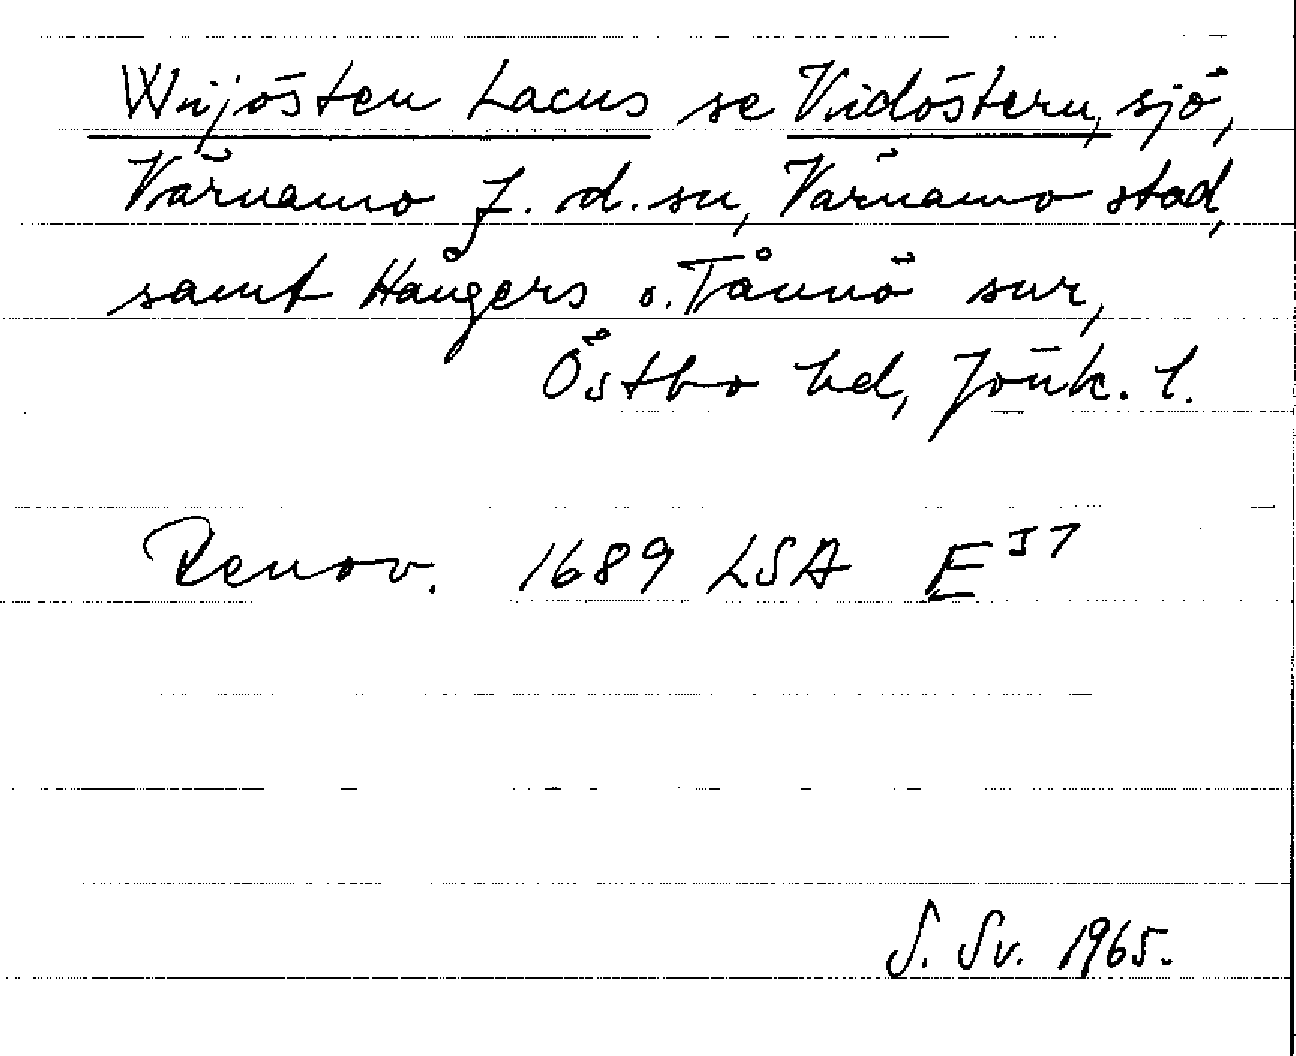 Wijösten Lacus se Vidöstern, sjö,
Värnamo f. d. sn, Värnamo stad,
samt Hångers o. Tånnö snr,
Östbo hd, Jönk. l.
Renov. 1689 LSA E 57
S. Sv. 1965.